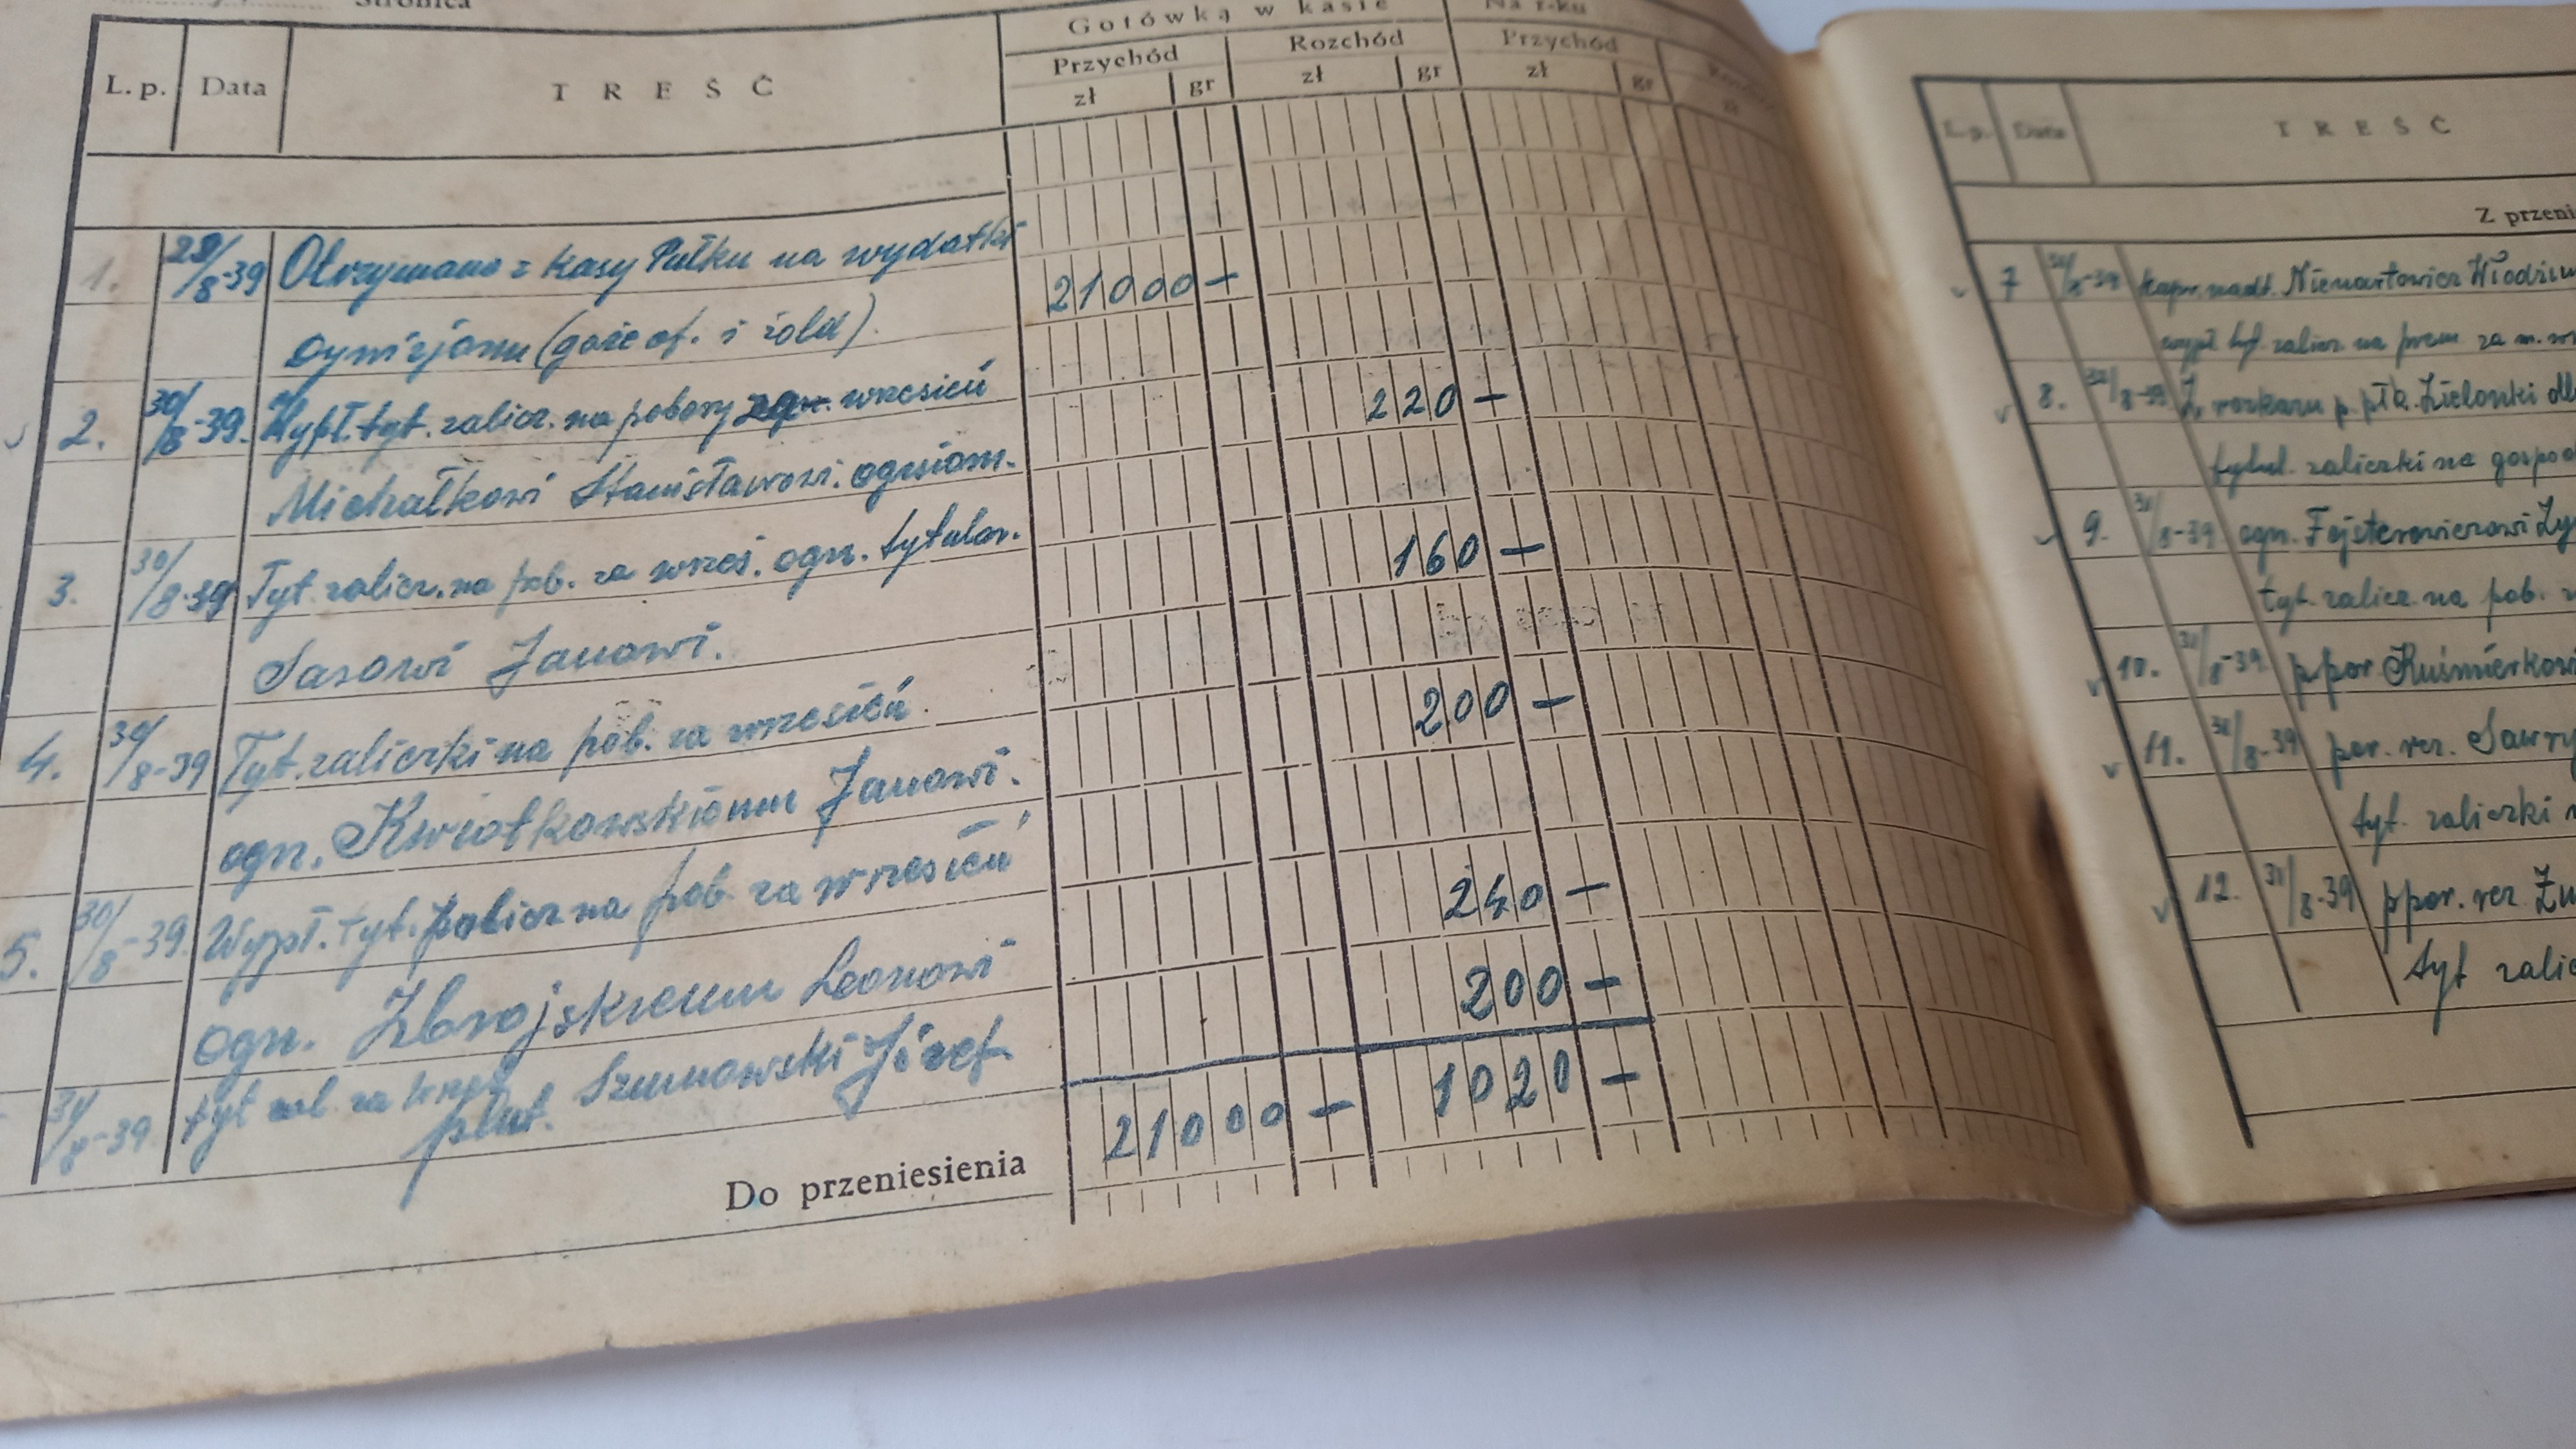 Stronica
L. p. Data TREŚĆ Gotówką w kasie Na r-ku
Przychód Rozchód Przychód
zł gr zł gr zł gr zł
1. 29/8-39 Otrzymano z kasy Pułku na wydatki 21000 —
dywizjonu (gaże of. i żołd).
2. 30/8-39. Wypł. tyt. zalicz. na pobory wrzesień 220 —
Michałkowi Stanisławowi. ogniom.
3. 30/8-39 Tyt. zalicz. na pob. za wrześ. ogn. tytular. 160 —
Sasowi Janowi.
4. 30/8-39 Tyt. zaliczki na pob. za wrzesień. 200 —
ogn. Kwiatkowskiemu Janowi.
5. 30/8-39. Wypł. tyt. zalicz na pob za wrzesień 240 —
ogn. Zbrojskiemu Leonowi
31/8-39 tyt zal. za wrześ 200 —
plut. Szumowski Józef
Do przeniesienia 21000 — 1020 —
L. p. Data TREŚĆ
Z przeni
7 31/8-39 kapr. nadt. Niewartowicz Włodzim
wypł tyt. zalicz na prem za m. wr
8. 31/8-39 Z rozkazu p. płk. Zielonki dl
tytuł. zaliczki na gospod
9. 31/8-39 ogn. Fejsterowiczowi Zy
tyt. zalicz na pob.
10. 31/8-39. ppor Kuśmierkowi
11. 31/8-39 por. rez. Sawry
tyt. zaliczki
12. 31/8-39 ppor. rez Zu
tyt zalic